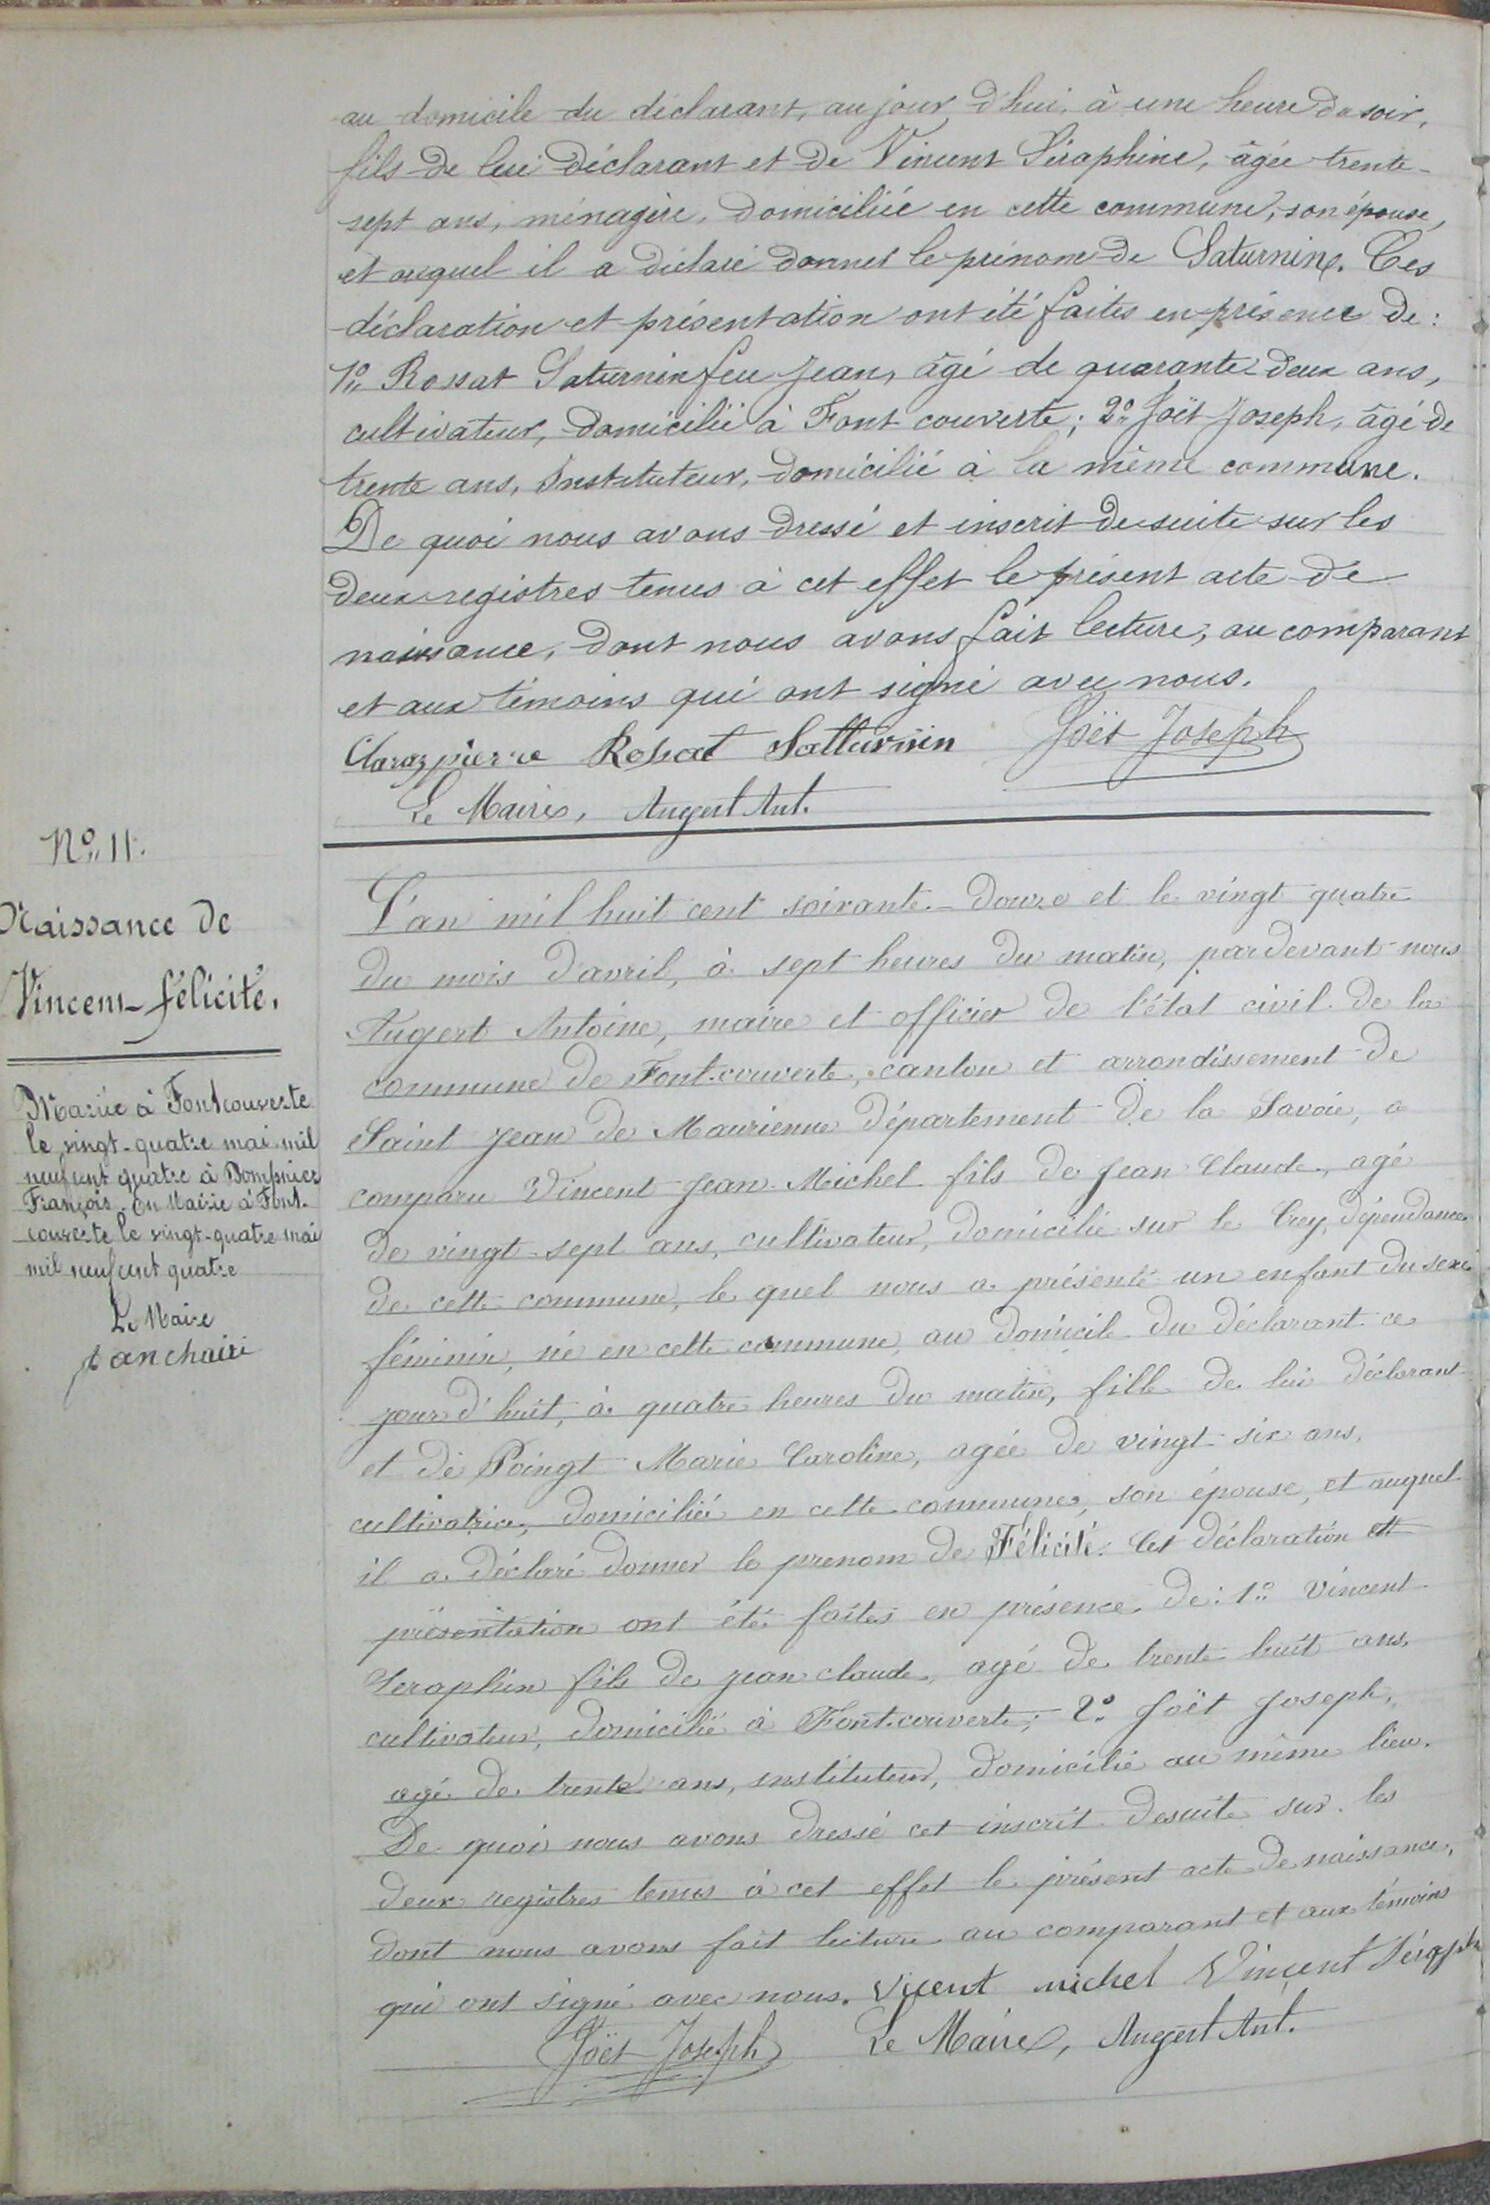 au domicile du déclarant, aujourd'hui, à une heure du soir,
fils de lui déclarant et de Vincent Séraphine, âgée trente-
sept ans, ménagère, domiciliée en cette commune, son épouse,
et auquel il a déclaré donner le prénom de Saturnin. Ces
déclaration et présentation ont été faites en présence de:
1° Rossat Saturnin feu Jean, âgé de quarante deux ans,
cultivateur, domicilié à Font couverte; 2° Joët Joseph, âgé de
trente ans, Instituteur, domicilié à la même commune.
De quoi nous avons dressé et inscrit de suite sur les
deux registres tenus à cet effet le présent acte de
naissance, dont nous avons fait lecture, au comparant
et aux témoins qui ont signé avec nous.
Claraz pierre Rossat Satturnin Joët Joseph
Le Maire, Augert Ant.
N° 11.
Naissance de
Vincent Félicité.
Mariée à Fontcouverte
le vingt-quatre mai mil
neuf cent quatre à Dompnier
François. En Mairie à Font-
couverte le vingt-quatre mai
mil neuf cent quatre
Le Maire
L'an mil huit cent soixante-douze et le vingt quatre
du mois d'avril, à sept heures du matin, pardevant nous
Augert Antoine, maire et officier de l'état civil de la
commune de Font-couverte, canton et arrondissement de
Saint Jean de Maurienne département de la Savoie, a
comparu Vincent Jean-Michel fils de Jean Claude, agé
de vingt-sept ans, cultivateur, domicilié sur le Crey, dépendance
de cette commune, le quel nous a présenté un enfant du sexe
féminin, né en cette commune, au domicile du déclarant ce
jour d'huit, à quatre heures du matin, fille de lui déclarant
et de Poingt Marie Caroline, agée de vingt-six ans,
cultivatrice, domiciliée en cette commune, son épouse, et auquel
il a déclaré donner le prenom de Félicité. Cet déclaration et
présentation ont été faites en présence de: 1° Vincent
Seraphin fils de Jean claude, agé de trente huit ans,
cultivateur, domicilié à Font-couverte; 2° Joët Joseph,
agé de trente ans, instituteur, domicilié au même lieu.
De quoi nous avons dressé cet inscrit desuite sur les
deux registres tenus à cet effet le présent acte de naissance,
dont nous avons fait lecture au comparant et aux témoins
qui ont signé avec nous. Vicent michel Vincent Séraph
Joët Joseph Le Maire, Augert Ant.